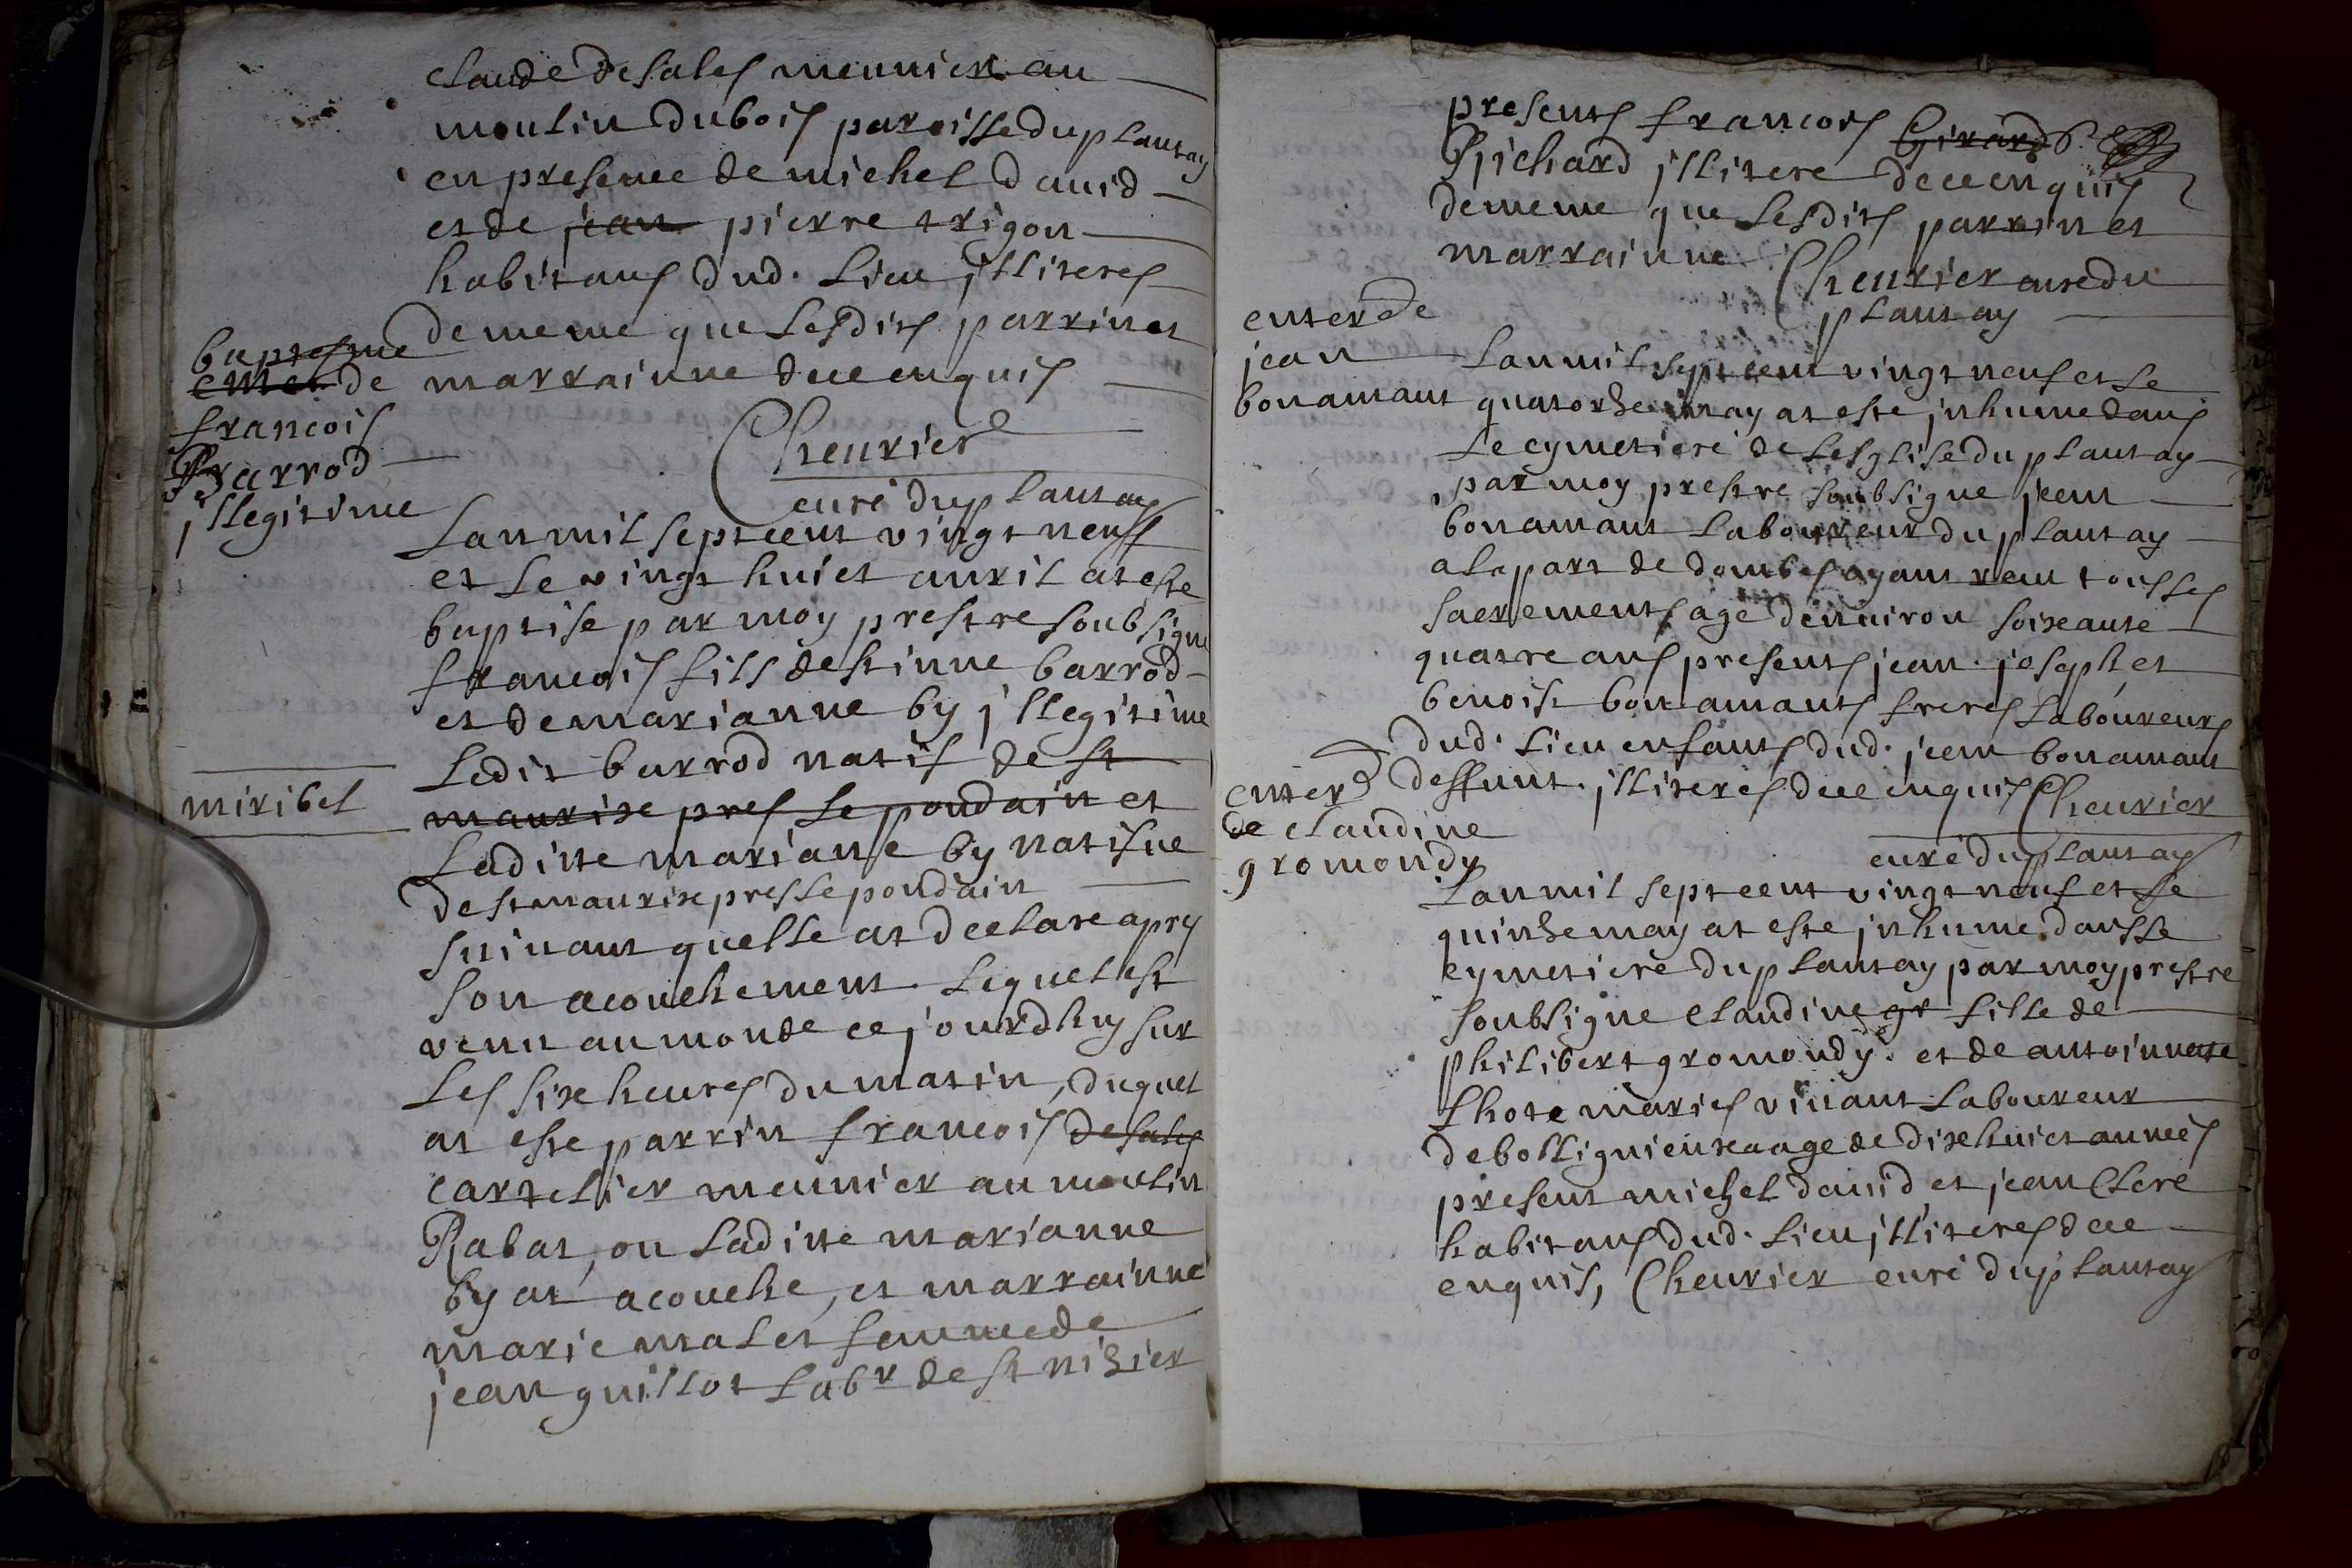 claude desales meunier au
moulin dubois paroisse du plantay
en presence de michel david
et de jean pierre trigon
habitans dud. lieu illiteres
de meme que lesdits parrin et
marrainne de ce enquis
Cheurier
curé du plantay
baptesme
enter de
francois
Barrod
illegitime
Lan mil sept cent vingt neuf
et le vingt huict auril at este
baptise par moy prestre soubsigne
francois fils destinne barrod
et de marianne by illegitime
Ledit barrod natif de st
maurixe pres le pondain et
miribel
Laditte marianne by natifue
de st maurixe pres le pondain
suiuant quelle at declare apres
son acouchement. Lequel est
venu au monde ce jourdhuy sur
les sixe heures du matin, duquel
at este parrin francois desales
cartelier meunier au moulin
Rabat, ou laditte marianne
by at acouche, et marrainne
marie malet femme de
jean guillot labr de st nizier
presents francois Girard
Richard illitere de ce enquis
de meme que lesdits parrin et
marrainne Cheurier curé du
plantay
enter de
jean
bonamant
Lan mil sept cent vingt neuf et le
quatorze may at este inhume dans
le cymetiere de leglise du plantay
par moy prestre soubsigne jean
bonamant laboureur du plantay
a la part de dombes ayant reeu tous les
sacrements age denuiron soixante
quatre ans presents jean. joseph et
benoist bonamants freres laboureurs
dud. lieu enfants dud. jean bonamant
deffunt. illiteres de ce enquis Cheurier
curé du plantay
enter
de claudine
gromondy
Lan mil sept cent vingt neuf et le
quinze may at este inhume dans le
cymetiere du plantay par moy prestre
soubsigne claudine gr fille de
philibert gromondy. et de antoinnete
Lhote maries viuant laboureur
de bollignieux aage de dixe huict années
present michel david et jean Clere
habitans dud. lieu illiteres de ce
enquis, Cheurier curé du plantay